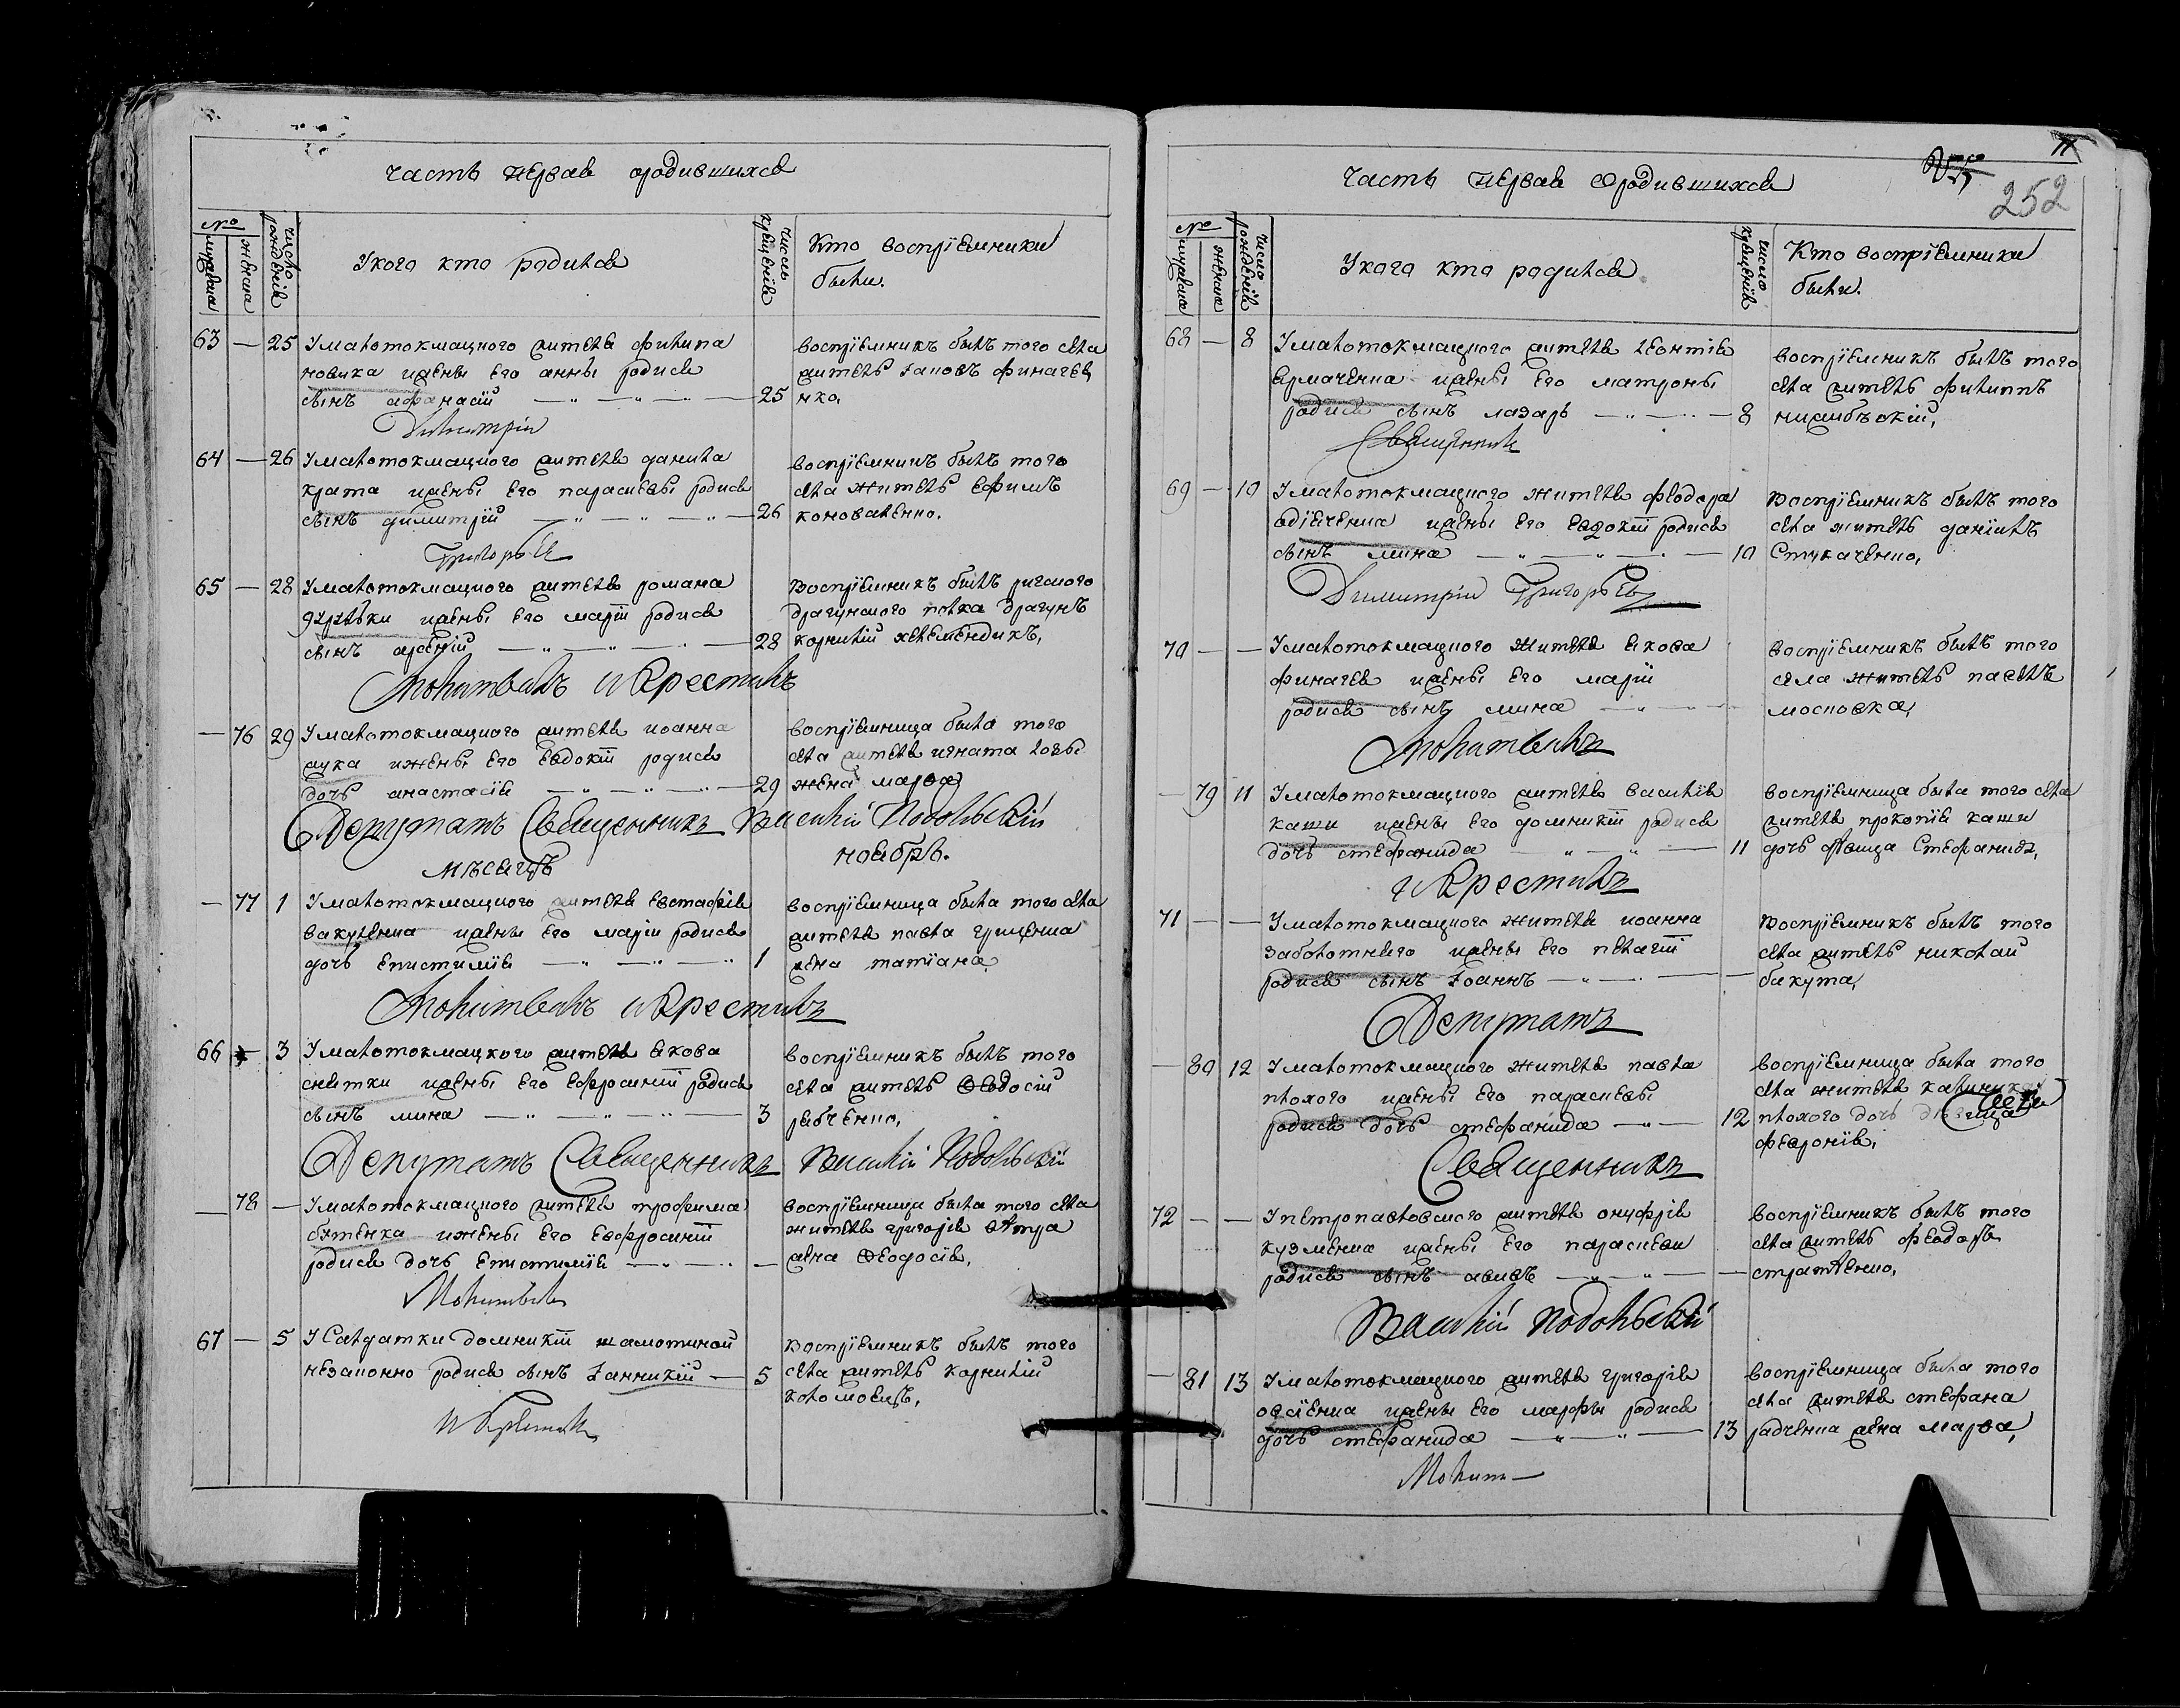 часть первая ородившихся
№
мужеска
женска
число рождения
Укого кто родился
число крещения
Кто воспріемники
были.
63 — 25 Умалотокмацкого жителя филипа
новика ижены его анны родися
сынъ афанасій — 25
воспріемникъ былъ того села
житель
нко,
Димитрій
64 — 26 Умалотокмацкого жителя данила
ижены его параскевы родися
сынъ димитрій — 26
воспріемникъ былъ того
села житель ефимъ
коноваленко.
Григорьевъ
65 — 28 Умалотокмацкого жителя романа
ижены его маріи родися
сынъ — 28
воспріемникъ былъ
драгунского полка драгунъ
корнилій
Молитвилъ и Крестилъ
— 76 29 Умалотокмацкого жителя иоанна
ижены его Евдокіи родися
дочь анастасія — 29
воспріемница была того
села жителя игната
жена марфа
Депутатъ Священникъ Василій Подольскій
мѣсяцъ ноябрь.
— 77 1 Умалотокмацкого жителя евстафія
вакуленка ижены его маріи родися
дочь епистимія — 1
воспріемница была того села
жителя павла грищенка
жена татіана,
Молитвилъ и Крестилъ
66 — 3 Умалотокмацкого жителя якова
снитки ижены его ефросиніи родися
сынъ мина — 3
воспріемникъ былъ того
села житель Феодосій
рябченко,
Депутатъ Священникъ Василій Подольскій
— 78 — Умалотокмацкого жителя трофима
бутенка ижены его евфросиніи
родися дочь епистимія —
воспріемница была того села
жителя григорія
жена Феодосія,
Молитвилъ
67 — 5 У Салдатки домникіи шамотиной
незаконно родися сынъ Іанникій — 5
воспріемникъ былъ того
села житель корнилій
коломоецъ,
и Крестилъ
часть первая Ородившихся
252
№
мужеска
женска
число рождения
Укого кто родился
число крещения
Кто воспріемники
были.
68 — 8 Умалотокмацкого жителя леонтія
ермаченка ижены его матроны
родися сынъ лазарь — 8
воспріемникъ былъ того
села житель филиппъ
Священникъ
69 — 10 Умалотокмацкого жителя феодора
авдіенка ижены его евдокіи родися
сынъ мина — 10
воспріемникъ былъ того
села житель даніилъ
Стукаченко,
Димитрій Григорьевъ
70 — — Умалотокмацкого жителя якова
ижены его маріи
родися сынъ мина —
воспріемникъ былъ того
села житель павелъ
московка,
Молитвилъ
— 79 11 Умалотокмацкого жителя василія
каши ижены его домникіи родися
дочь стефанида — 11
воспріемница была того села
жителя прокопія каши
дочь дѣвица Стефанида,
и Крестилъ
71 — — Умалотокмацкого жителя иоанна
заболотнего ижены его пелагіи
родися сынъ Іоаннъ —
воспріемникъ былъ того
села житель николай
бакута,
Депутатъ
— 80 12 Умалотокмацкого жителя павла
плохого ижены его параскевы
родися дочь стефанида — 12
воспріемница была того
села жителя калиника
плохого дочь дѣвица
февронія,
Священникъ
72 — — У петропавловского жителя онуфрія
кузменка ижены его параскеви
родися сынъ авивъ —
воспріемникъ былъ того
села житель феодоръ
Василій Подольскій
— 81 13 Умалотокмацкого жителя григорія
овсіенка ижены его марфы родися
дочь стефанида — 13
воспріемница была того
села жителя стефана
радченка жена марфа,
Молитв